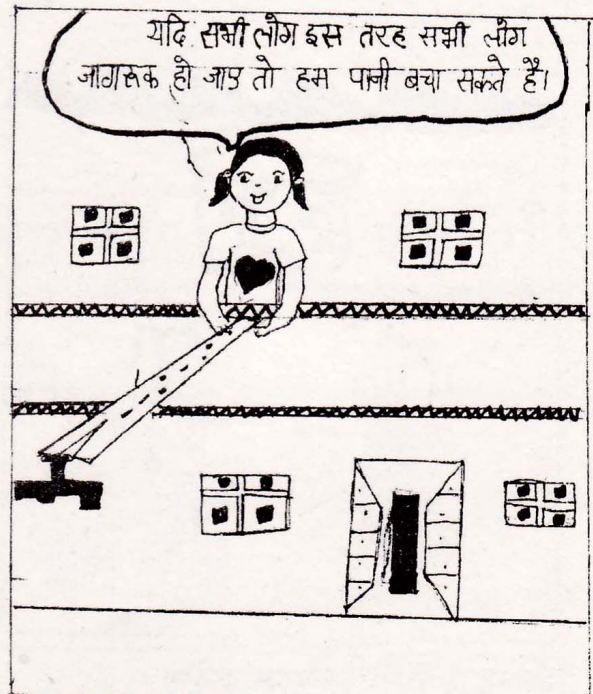 यदि सभी लोग इस तरह सभी लोग
जागरूक हो जाए तो हम पानी बचा सकते है।